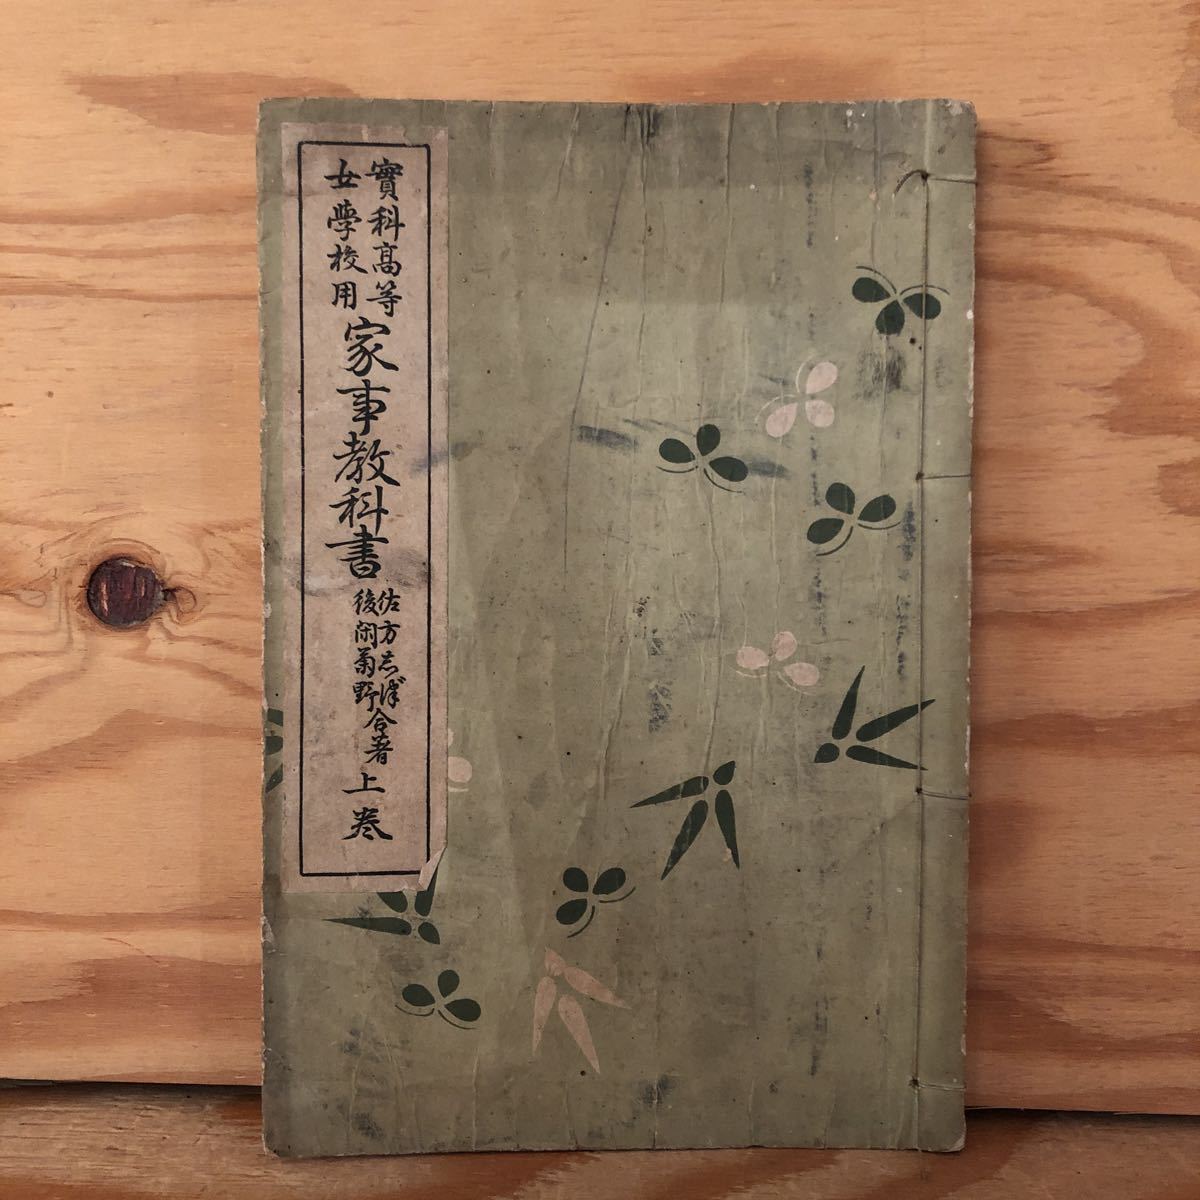 實科高等
女學校用
家事教科書
佐方志津
後閑菊野
合著
上巻